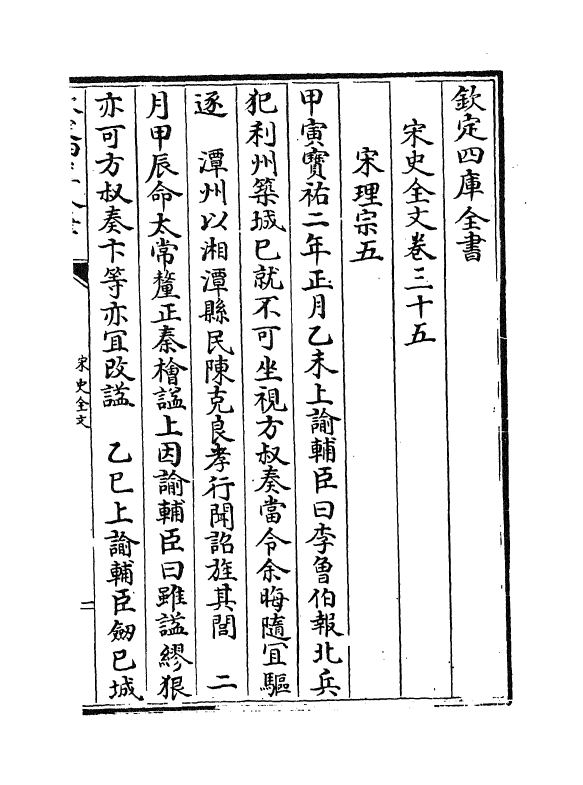 欽定四庫全書
宋史全文卷三十五
宋理宗五
甲寅寶祐二年正月乙未上諭輔臣曰李魯伯報北兵
犯利州築城已就不可坐視方叔奏當令余晦隨宜驅
逐　潭州以湘潭縣民陳克良孝行聞詔旌其閭　二
月甲辰命太常釐正秦檜諡上因諭輔臣曰雖諡繆狠
亦可方叔奏卞等亦宜改諡　乙巳上諭輔臣劒已城
宋史全文